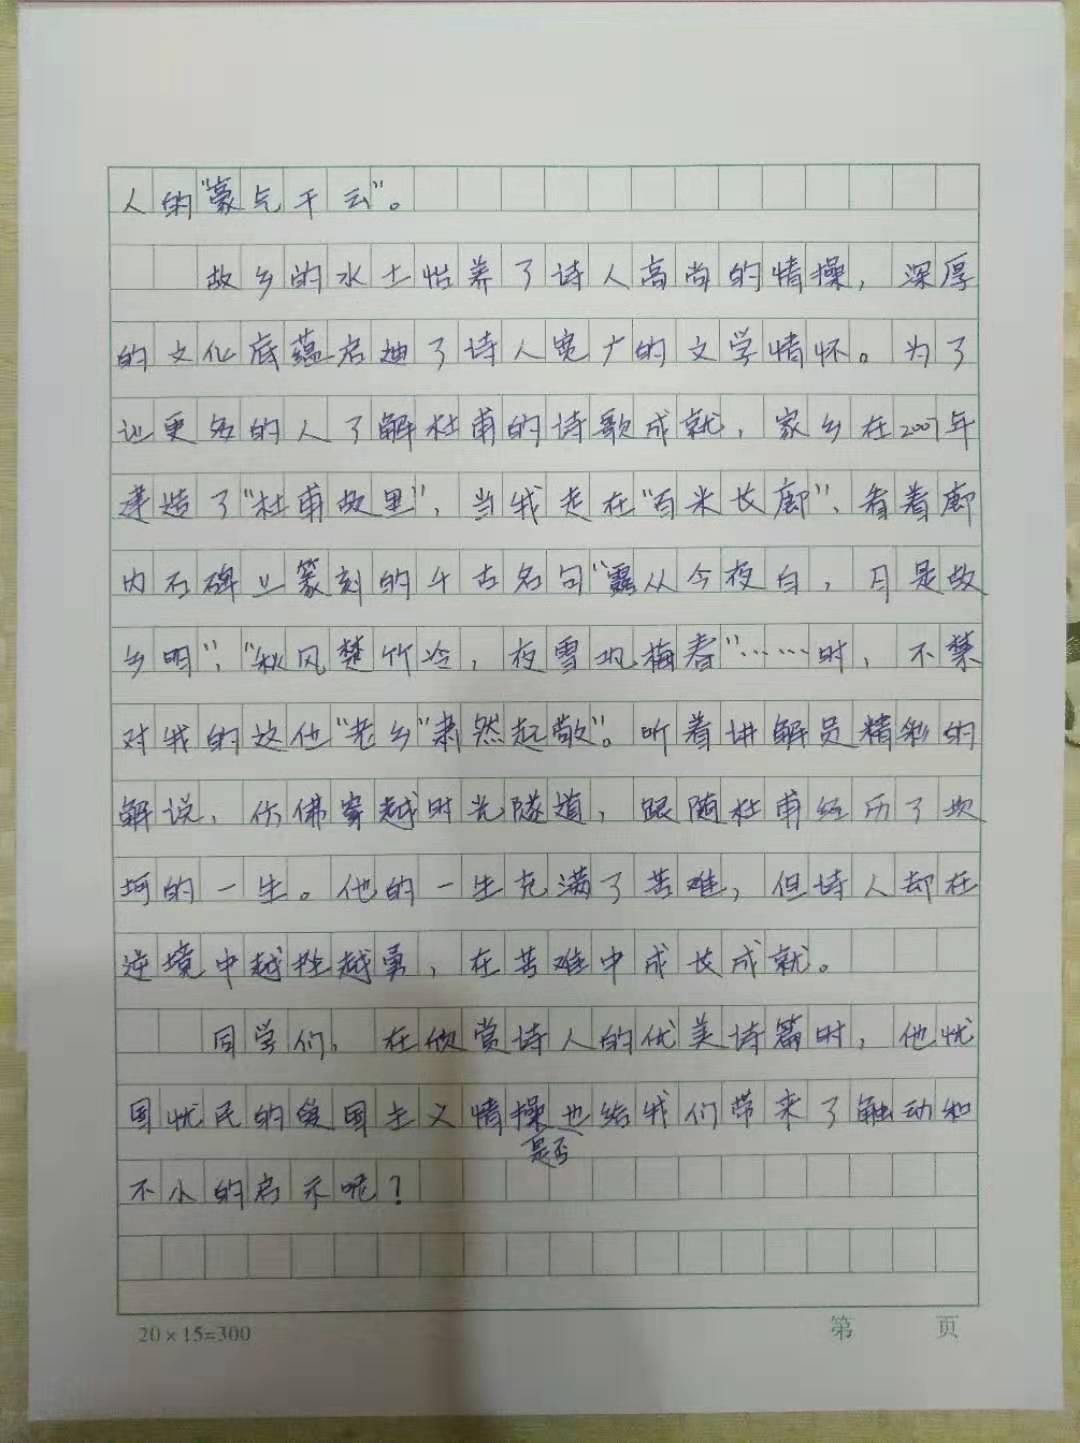 人的“豪气干云”。
故乡的水土怡养了诗人高尚的情操，深厚
的文化底蕴启迪了诗人宽广的文学情怀。为了
让更多的人了解杜甫的诗歌成就，家乡在2007年
建造了“杜甫故里”，当我走在“百米长廊”，看着廊
内石碑上篆刻的千古名句“露从今夜白，月是故
乡明”，“秋风楚竹冷，夜雪巩梅春”……时，不禁
对我的这位“老乡“肃然起敬”。听着讲解员精彩的
解说，仿佛穿越时光隧道，跟随杜甫经历了坎
坷的一生。他的一生充满了苦难，但诗人却在
逆境中越挫越勇，在苦难中成长成就。
同学们，在欣赏诗人的优美诗篇时，他忧
国忧民的爱国主义情操也给我们带来了触动和
是否
不小的启示呢？
20×15=300
第 页